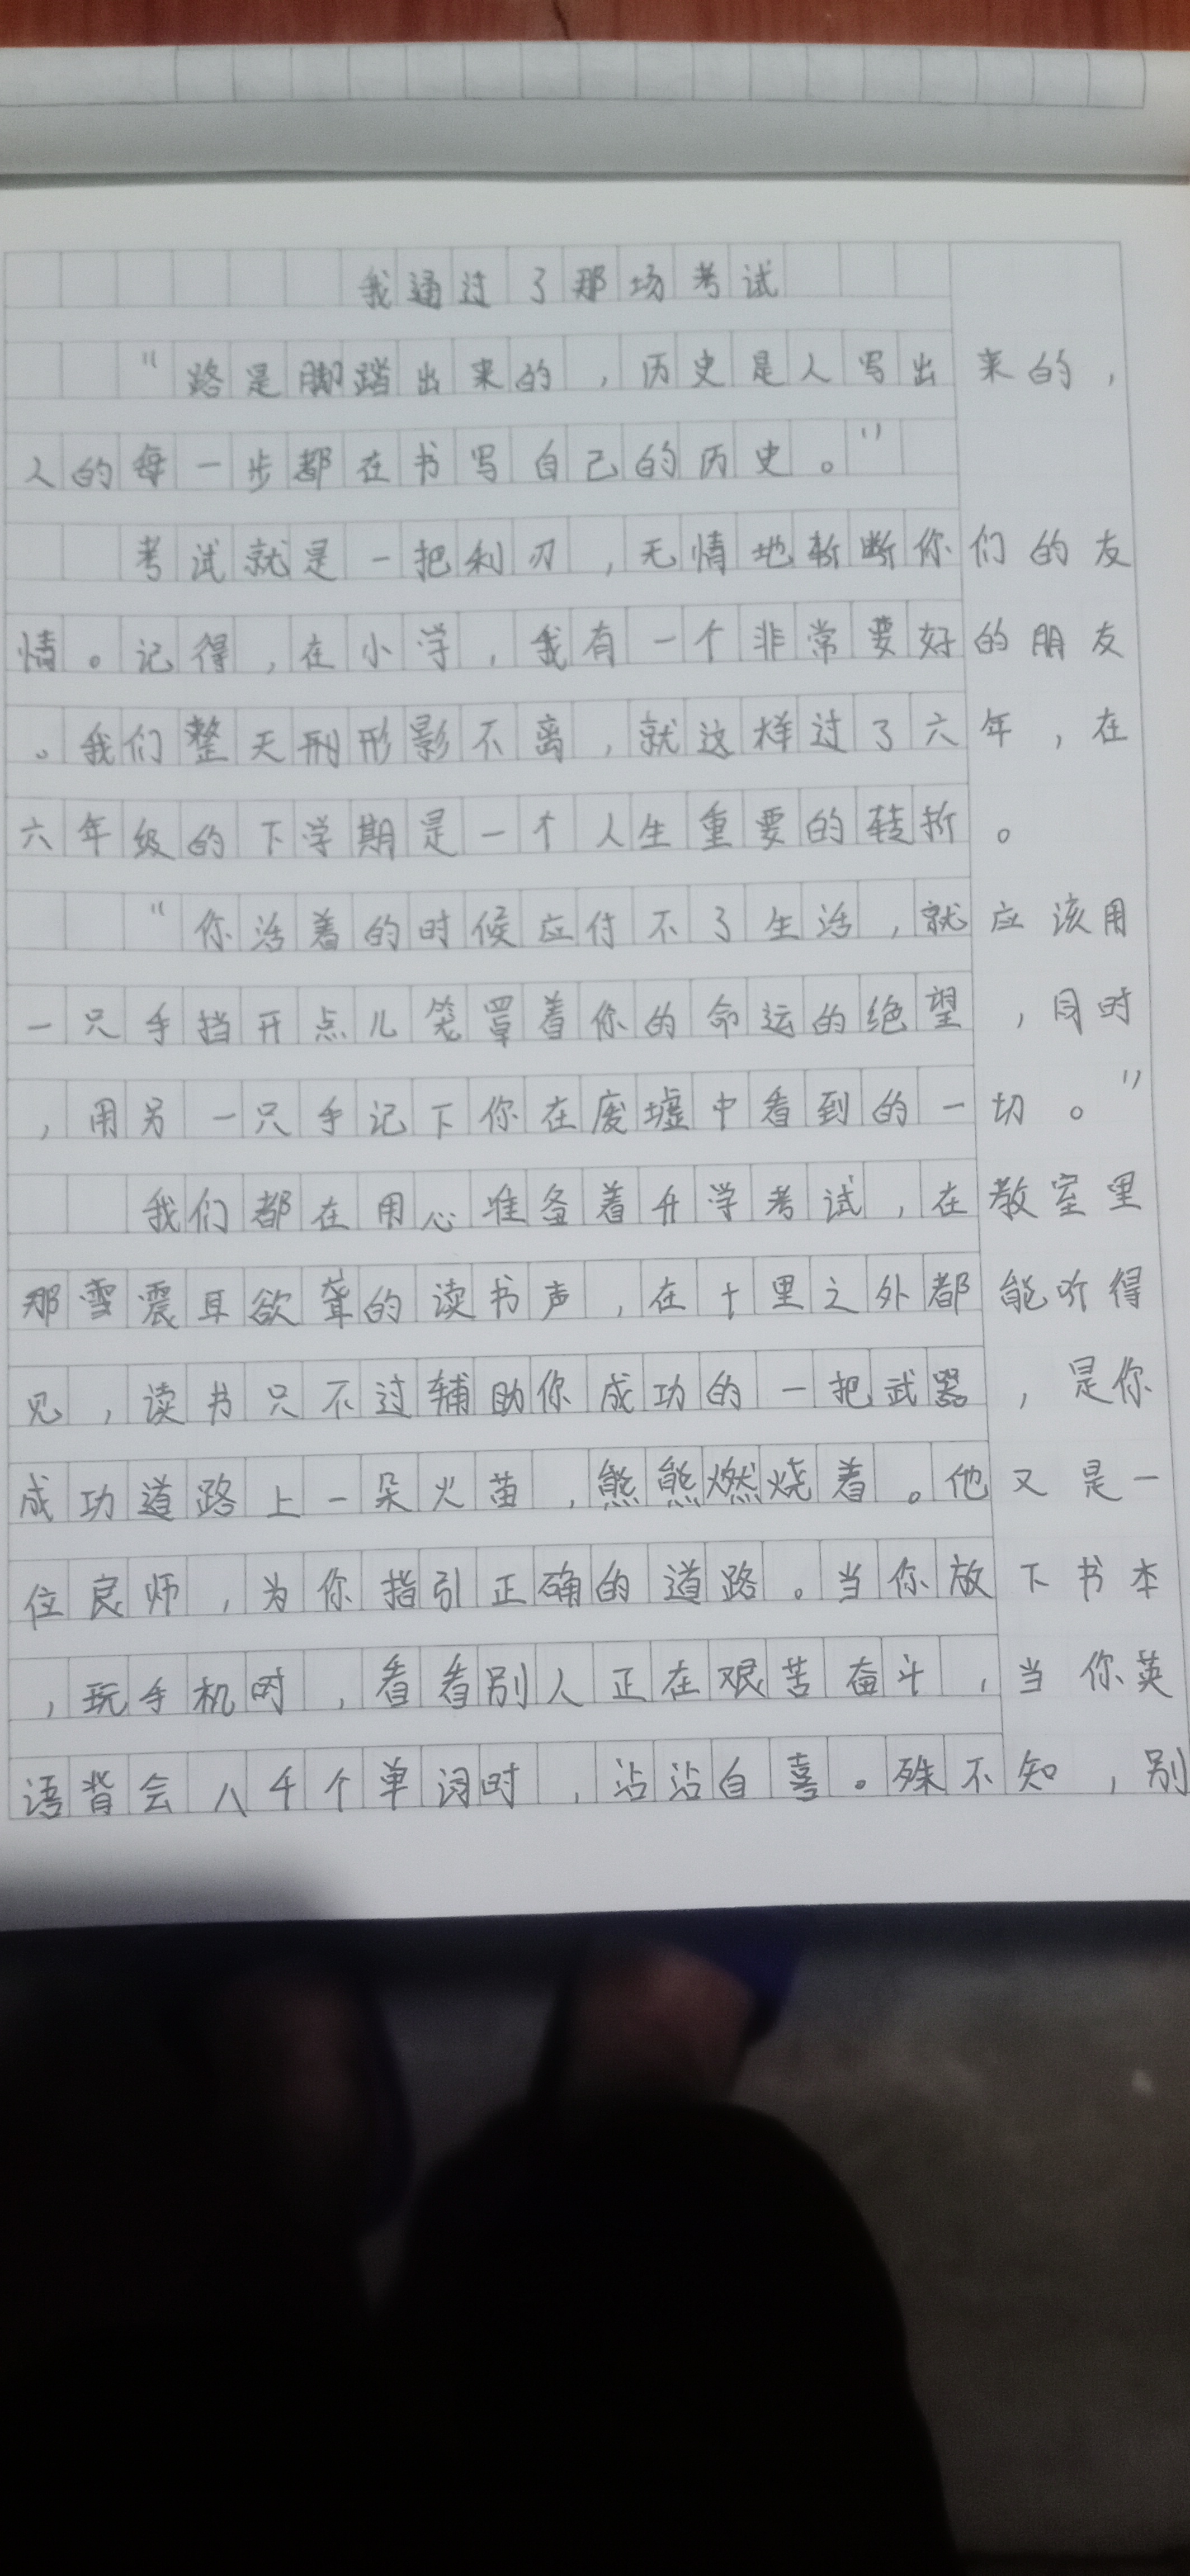 我通过了那场考试
“路是脚踏出来的，历史是人写出来的，
人的每一步都在书写自己的历史。”
考试就是一把利刃，无情地斩断你们的友
情。记得，在小学，我有一个非常要好的朋友
。我们整天形影不离，就这样过了六年，在
六年级的下学期是一个人生重要的转折。
“你活着的时候应付不了生活，就应该用
一只手挡开点儿笼罩着你的命运的绝望，同时
，用另一只手记下你在废墟中看到的一切。”
我们都在用心准备着升学考试，在教室里
那雪震耳欲聋的读书声，在十里之外都能听得
见，读书只不过辅助你成功的一把武器，是你
成功道路上一朵火苗，熊熊燃烧着。他又是一
位良师，为你指引正确的道路。当你放下书本
，玩手机时，看看别人正在艰苦奋斗，当你英
语背会八千个单词时，沾沾自喜。殊不知，别